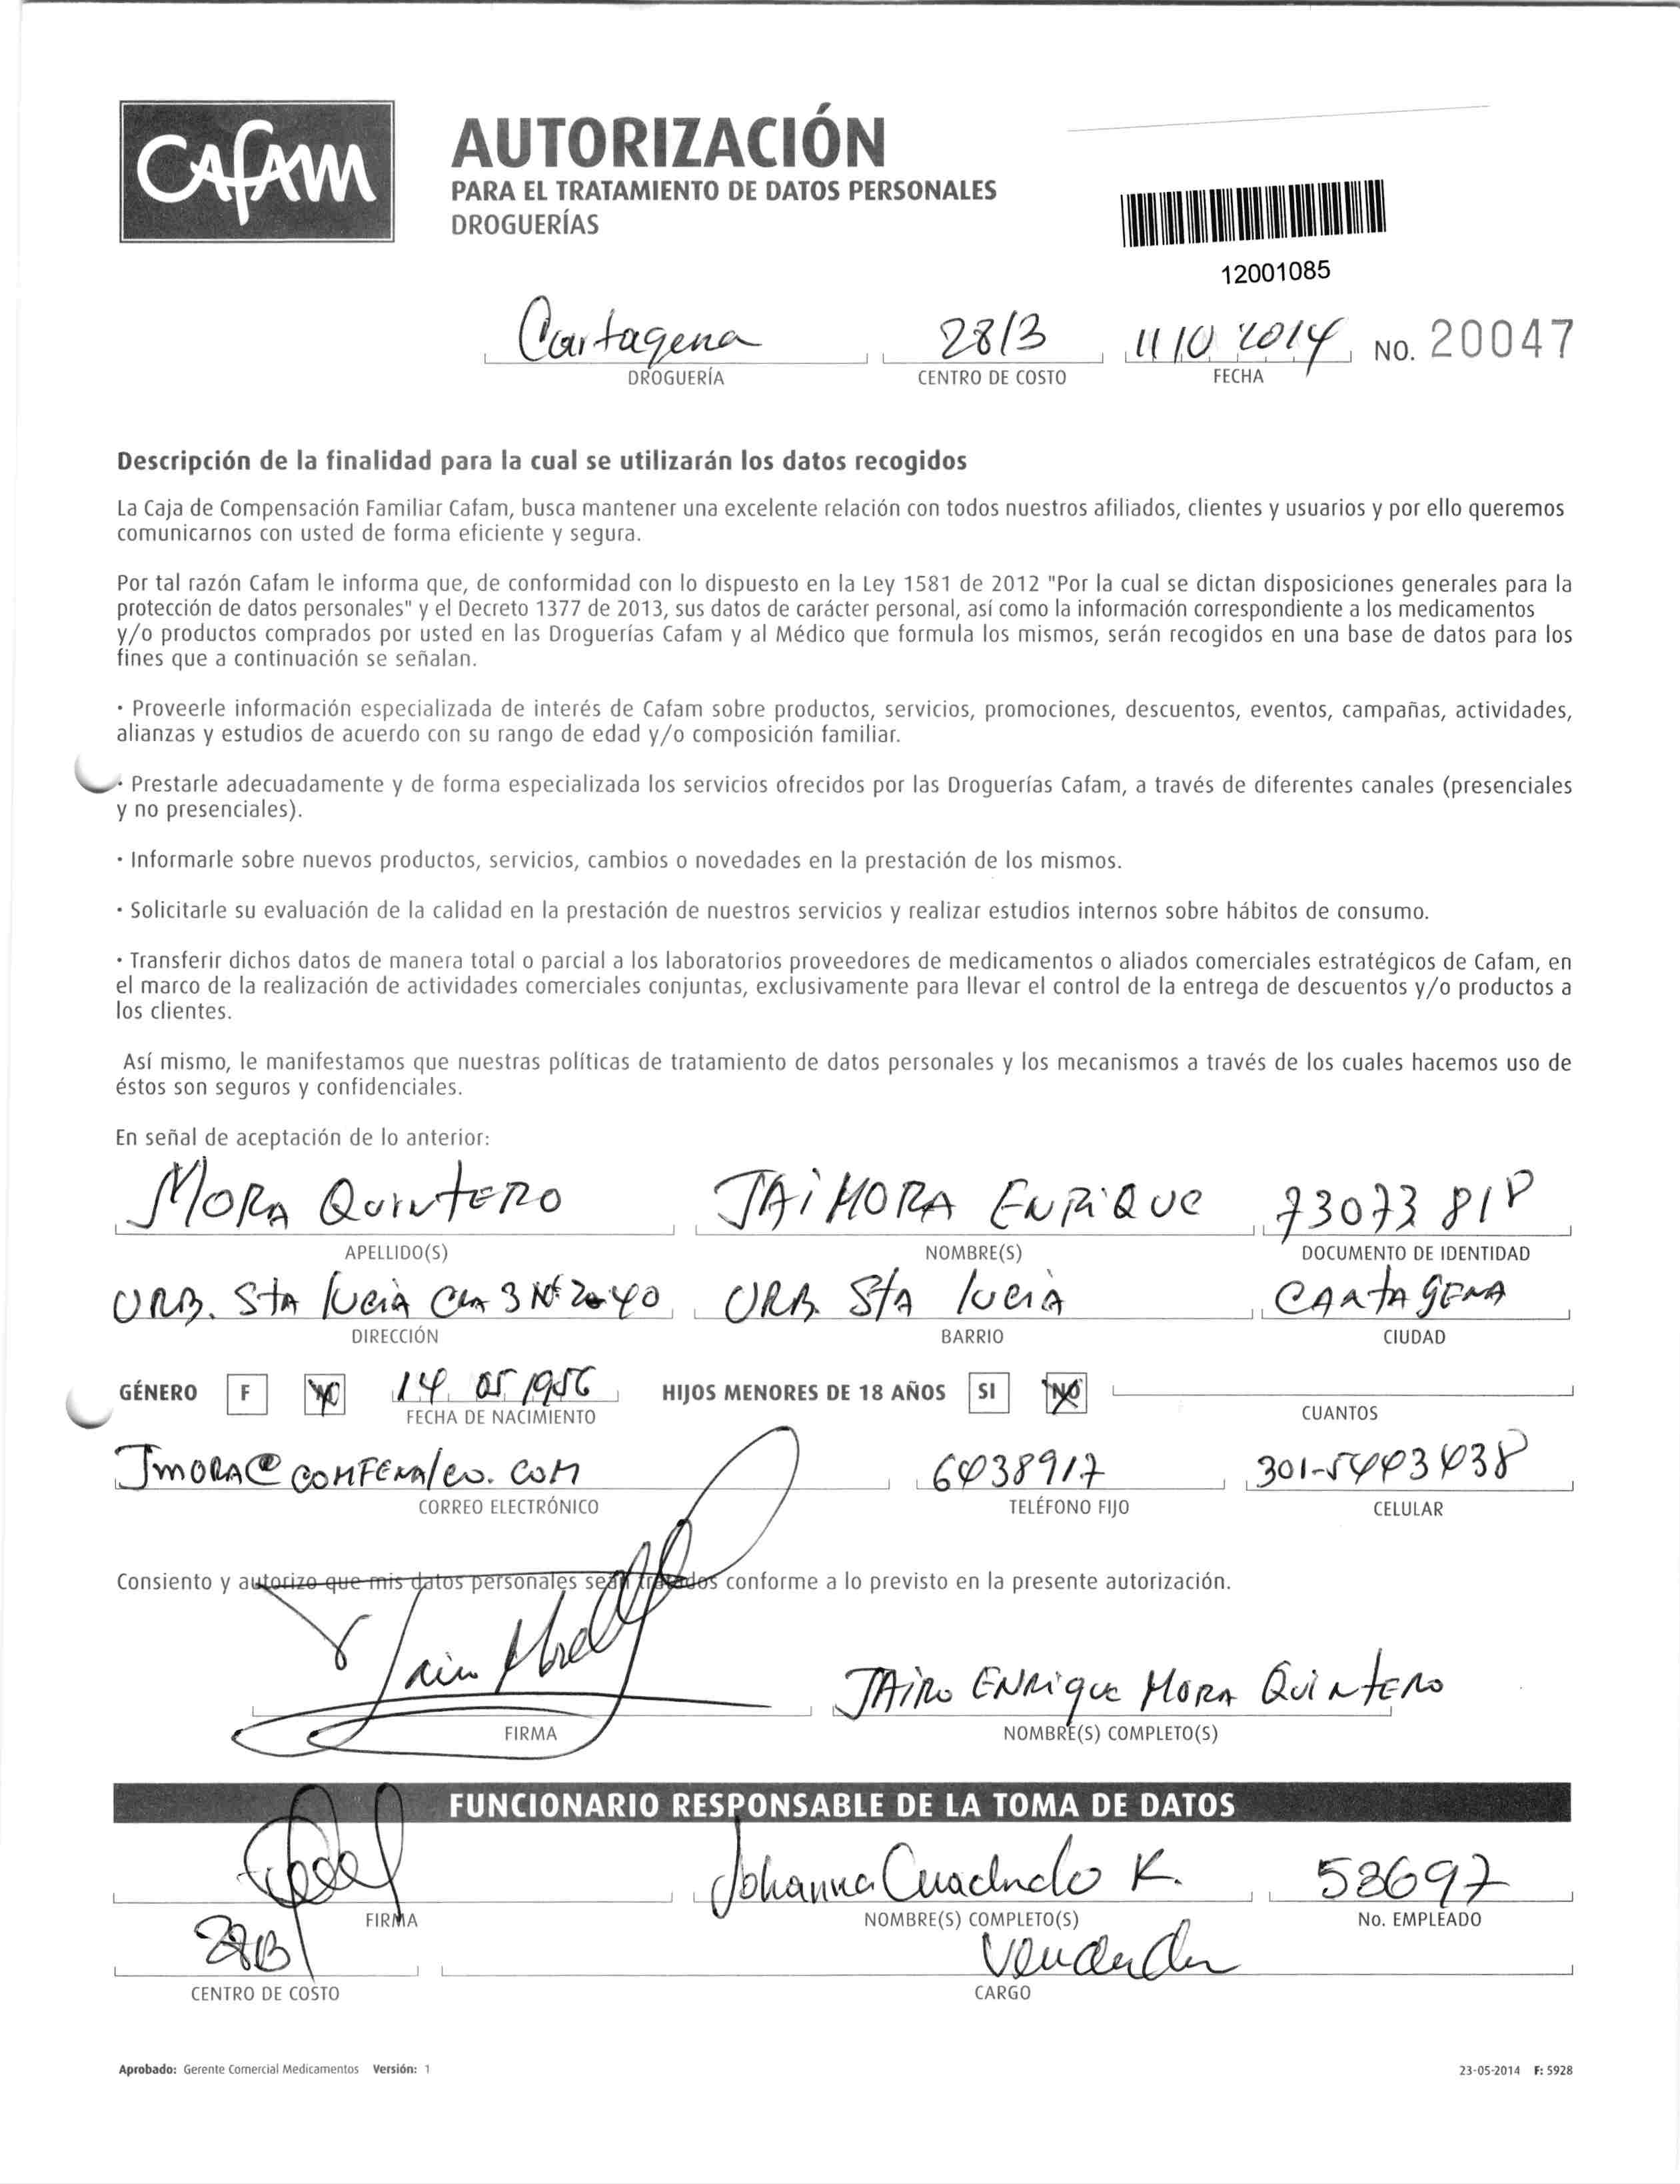 CAFAM
AUTORIZACIÓN
PARA EL TRATAMIENTO DE DATOS PERSONALES
DROGUERÍAS
12001085
Cartagena 2813 11 10 2014 NO. 20047
DROGUERÍA CENTRO DE COSTO FECHA
Descripción de la finalidad para la cual se utilizarán los datos recogidos
La Caja de Compensación Familiar Cafam, busca mantener una excelente relación con todos nuestros afiliados, clientes y usuarios y por ello queremos
comunicarnos con usted de forma eficiente y segura.
Por tal razón Cafam le informa que, de conformidad con lo dispuesto en la Ley 1581 de 2012 "Por la cual se dictan disposiciones generales para la
protección de datos personales" y el Decreto 1377 de 2013, sus datos de carácter personal, así como la información correspondiente a los medicamentos
y/o productos comprados por usted en las Droguerías Cafam y al Médico que formula los mismos, serán recogidos en una base de datos para los
fines que a continuación se señalan.
· Proveerle información especializada de interés de Cafam sobre productos, servicios, promociones, descuentos, eventos, campañas, actividades,
alianzas y estudios de acuerdo con su rango de edad y/o composición familiar.
· Prestarle adecuadamente y de forma especializada los servicios ofrecidos por las Droguerías Cafam, a través de diferentes canales (presenciales
y no presenciales).
· Informarle sobre nuevos productos, servicios, cambios o novedades en la prestación de los mismos.
· Solicitarle su evaluación de la calidad en la prestación de nuestros servicios y realizar estudios internos sobre hábitos de consumo.
· Transferir dichos datos de manera total o parcial a los laboratorios proveedores de medicamentos o aliados comerciales estratégicos de Cafam, en
el marco de la realización de actividades comerciales conjuntas, exclusivamente para llevar el control de la entrega de descuentos y/o productos a
los clientes.
Así mismo, le manifestamos que nuestras políticas de tratamiento de datos personales y los mecanismos a través de los cuales hacemos uso de
éstos son seguros y confidenciales.
En señal de aceptación de lo anterior:
MORA QUINTERO JAIMORA ENRIQUE 73073818
APELLIDO(S) NOMBRE(S) DOCUMENTO DE IDENTIDAD
URB. STA LUCIA CRA 3 Nº URB. STA LUCIA CARTAGENA
DIRECCIÓN BARRIO CIUDAD
GÉNERO F 14 05 1956 HIJOS MENORES DE 18 AÑOS SI NO
FECHA DE NACIMIENTO CUANTOS
JMORA@COMFENALCO.COM 6438917 301-5443438
CORREO ELECTRÓNICO TELÉFONO FIJO CELULAR
Consiento y autorizo que mis datos personales sean tratados conforme a lo previsto en la presente autorización.
JAIRO ENRIQUE MORA QUINTERO
FIRMA NOMBRE(S) COMPLETO(S)
FUNCIONARIO RESPONSABLE DE LA TOMA DE DATOS
Johanna Cuadrado K. 53697
FIRMA NOMBRE(S) COMPLETO(S) No. EMPLEADO
2813 Vendedor
CENTRO DE COSTO CARGO
Aprobado: Gerente Comercial Medicamentos Versión: 1 23-05-2014 F: 5928